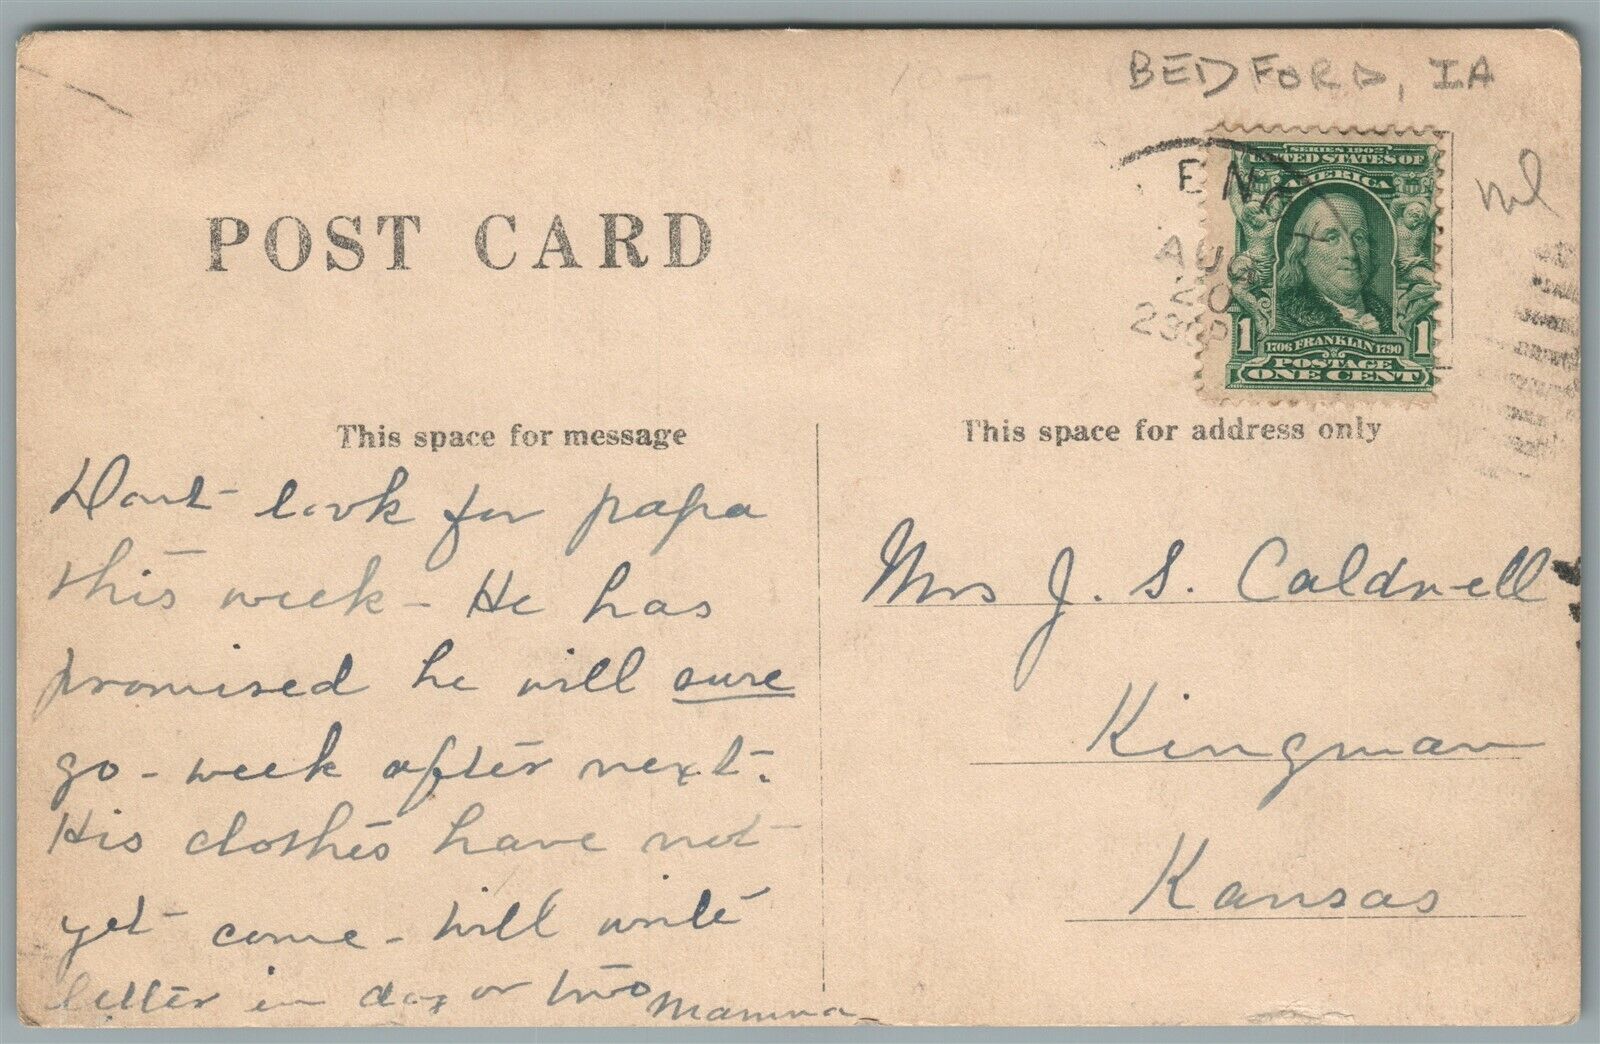 BEDFORD, IA
SERIES 1902
UNITED STATES OF
AMERICA
AUG
20
230P
1 1706 FRANKLIN 1790 1
POSTAGE
ONE CENT
POST CARD
This space for message
This space for address only
Dont look for papa
this week - He has
promised he will sure
go - week after next.
His clothes have not
yet come - Will write
letter in day or two Mamma
Mrs J. S. Caldwell
Kingman
Kansas